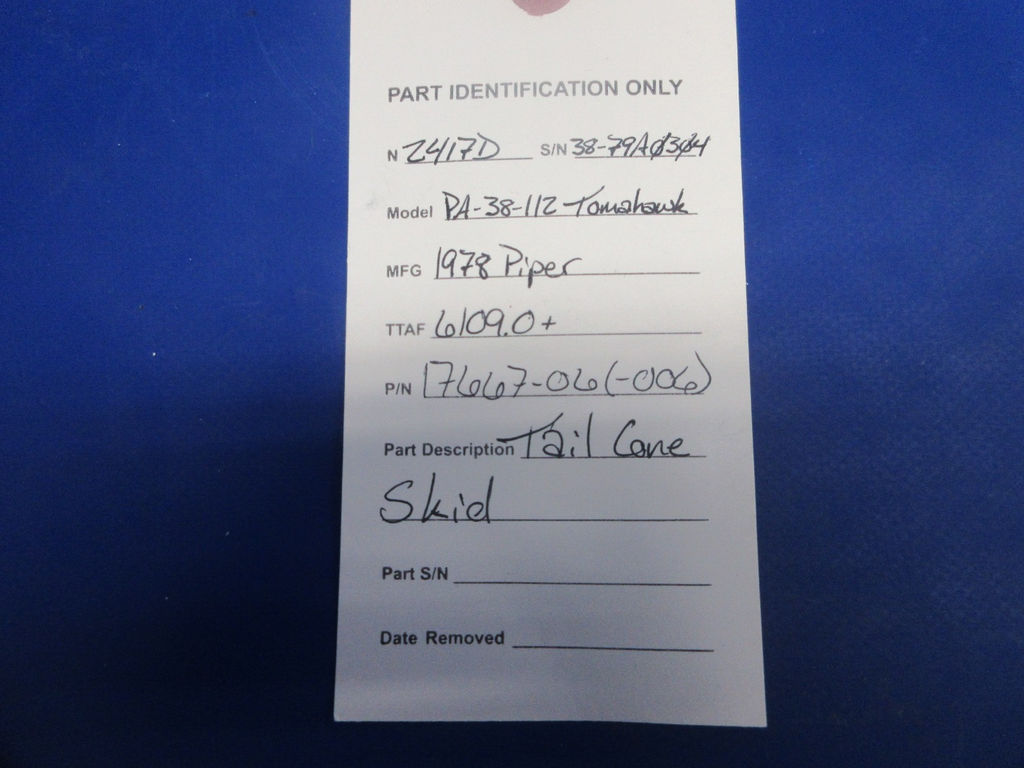 PART IDENTIFICATION ONLY
N 2417D S/N 38-79A0304
Model PA-38-112 Tomahawk
MFG 1978 Piper
TTAF 6109.0+
P/N 17667-06(-006)
Part Description Tail Cone
Skid
Part S/N
Date Removed